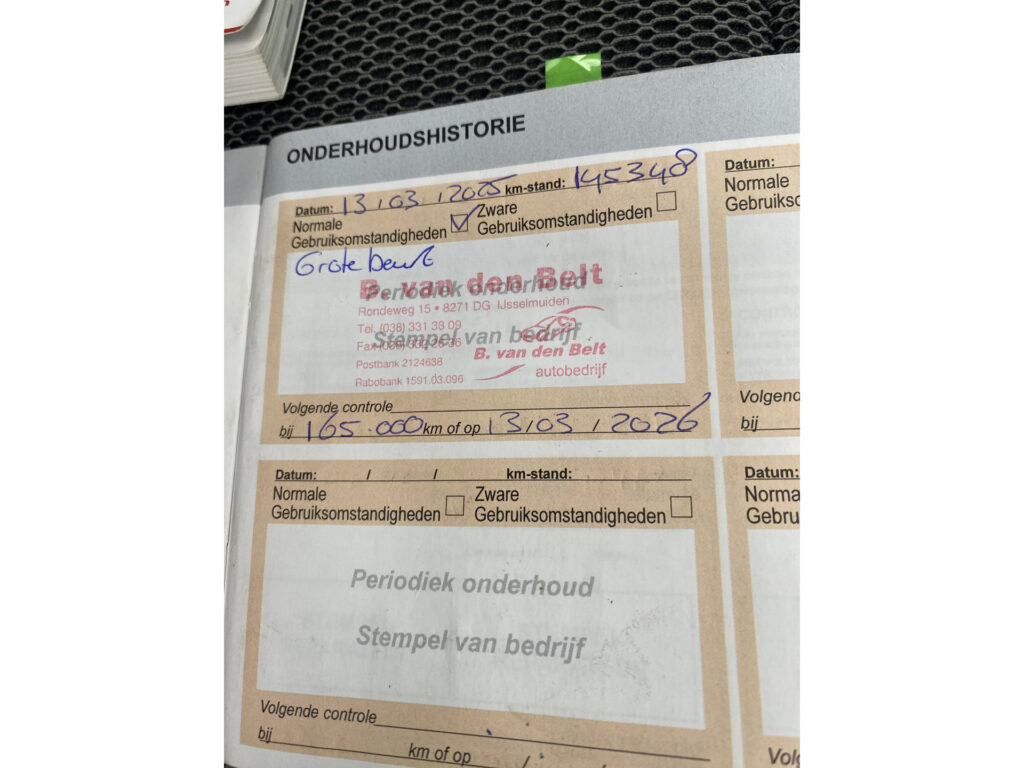 ONDERHOUDSHISTORIE
Datum: 13 / 03 / 2025 km-stand: 145348
Normale Gebruiksomstandigheden
Zware Gebruiksomstandigheden
Grote beurt
Periodiek onderhoud
Stempel van bedrijf
B. van den Belt
Rondeweg 15 • 8271 DG IJsselmuiden
Tel. (038) 331 38 09
Fax (038)
Postbank 2124638
Rabobank 1591.03.096
B. van den Belt
autobedrijf
Volgende controle
bij 165.000 km of op 13 / 03 / 2026
Datum: / / km-stand:
Normale Gebruiksomstandigheden
Zware Gebruiksomstandigheden
Periodiek onderhoud
Stempel van bedrijf
Volgende controle
bij km of op / /
Datum:
Normale
Gebruiksc
Volgend
bij
Datum:
Norma
Gebru
Volg